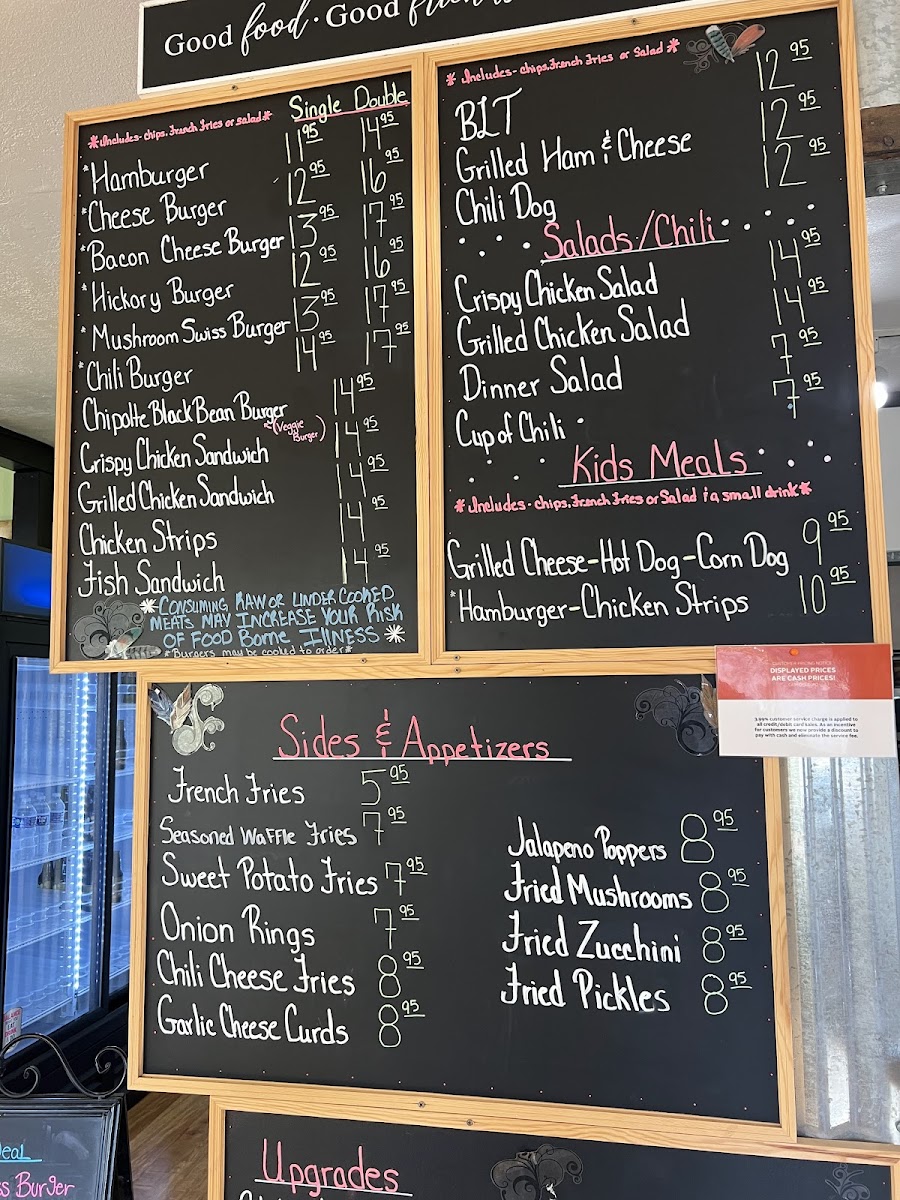 Good food · Good
* Includes - chips, French Fries or Salad *
Single Double
*Hamburger 11.95 14.95
*Cheese Burger 12.95 16.95
*Bacon Cheese Burger 13.95 17.95
*Hickory Burger 12.95 16.95
*Mushroom Swiss Burger 13.95 17.95
*Chili Burger 14.95 17.95
Chipolte Black Bean Burger 14.95
(Veggie Burger)
Crispy Chicken Sandwich 14.95
Grilled Chicken Sandwich 14.95
Chicken Strips 14.95
Fish Sandwich 14.95
* CONSUMING RAW OR UNDER COOKED
MEATS MAY INCREASE YOUR RISK
OF FOOD Borne ILLNESS *
*Burgers may be cooked to order*
* Includes - chips, French Fries or Salad *
BLT 12.95
Grilled Ham & Cheese 12.95
Chili Dog 12.95
Salads/Chili
Crispy Chicken Salad 14.95
Grilled Chicken Salad 14.95
Dinner Salad 7.95
Cup of Chili 7.95
Kids Meals
* Includes - chips, French Fries or Salad & a small drink *
Grilled Cheese-Hot Dog-Corn Dog 9.95
*Hamburger-Chicken Strips 10.95
DISPLAYED PRICES
ARE CASH PRICES!
3.99% customer service charge is applied to
all credit/debit card sales. As an incentive
for customers we now provide a discount to
pay with cash and eliminate the service fee.
Sides & Appetizers
French Fries 5.95
Seasoned Waffle Fries 7.95
Sweet Potato Fries 7.95
Onion Rings 7.95
Chili Cheese Fries 8.95
Garlic Cheese Curds 8.95
Jalapeno Poppers 8.95
Fried Mushrooms 8.95
Fried Zucchini 8.95
Fried Pickles 8.95
Upgrades
Burger